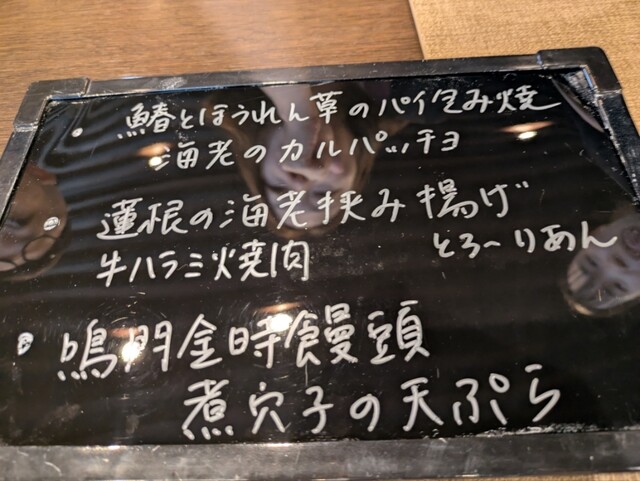 ・鰆とほうれん草のパイ包み焼
海老のカルパッチョ
蓮根の海老挟み揚げ
とろ〜りあん
牛ハラミ焼肉
・鳴門金時饅頭
煮穴子の天ぷら